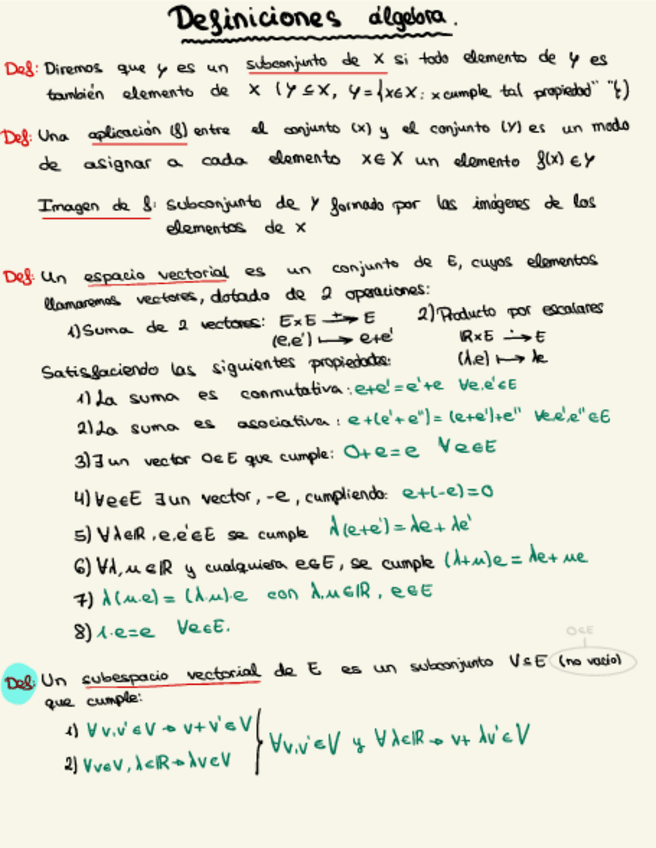 Definiciones álgebra.
Def: Diremos que Y es un subconjunto de X si todo elemento de Y es
también elemento de X (Y ⊆ X, Y = {x∈X : x cumple tal propiedad" "})
Def: Una aplicación (f) entre el conjunto (X) y el conjunto (Y) es un modo
de asignar a cada elemento x∈X un elemento f(x)∈Y
Imagen de f: subconjunto de Y formado por las imágenes de los
elementos de X
Def: Un espacio vectorial es un conjunto de E, cuyos elementos
llamaremos vectores, dotado de 2 operaciones:
1) Suma de 2 vectores: E×E —+→ E 2) Producto por escalares
(e,e') ↦ e+e' ℝ×E —·→ E
Satisfaciendo las siguientes propiedades: (λ,e) ↦ λe
1) La suma es conmutativa: e+e'=e'+e ∀e,e'∈E
2) La suma es asociativa: e+(e'+e'')=(e+e')+e'' ∀e,e',e''∈E
3) ∃ un vector 0∈E que cumple: 0+e=e ∀e∈E
4) ∀e∈E ∃ un vector, -e, cumpliendo: e+(-e)=0
5) ∀λ∈ℝ, e,e'∈E se cumple λ(e+e')=λe+λe'
6) ∀λ,μ∈ℝ y cualquiera e∈E, se cumple (λ+μ)e=λe+μe
7) λ(μ.e)=(λ.μ).e con λ,μ∈ℝ, e∈E
8) 1·e=e ∀e∈E.
0∈E
Def: Un subespacio vectorial de E es un subconjunto V⊆E (no vacío)
que cumple:
1) ∀v,v'∈V → v+v'∈V
2) ∀v∈V, λ∈ℝ → λv∈V } ∀v,v'∈V y ∀λ∈ℝ → v+λv'∈V